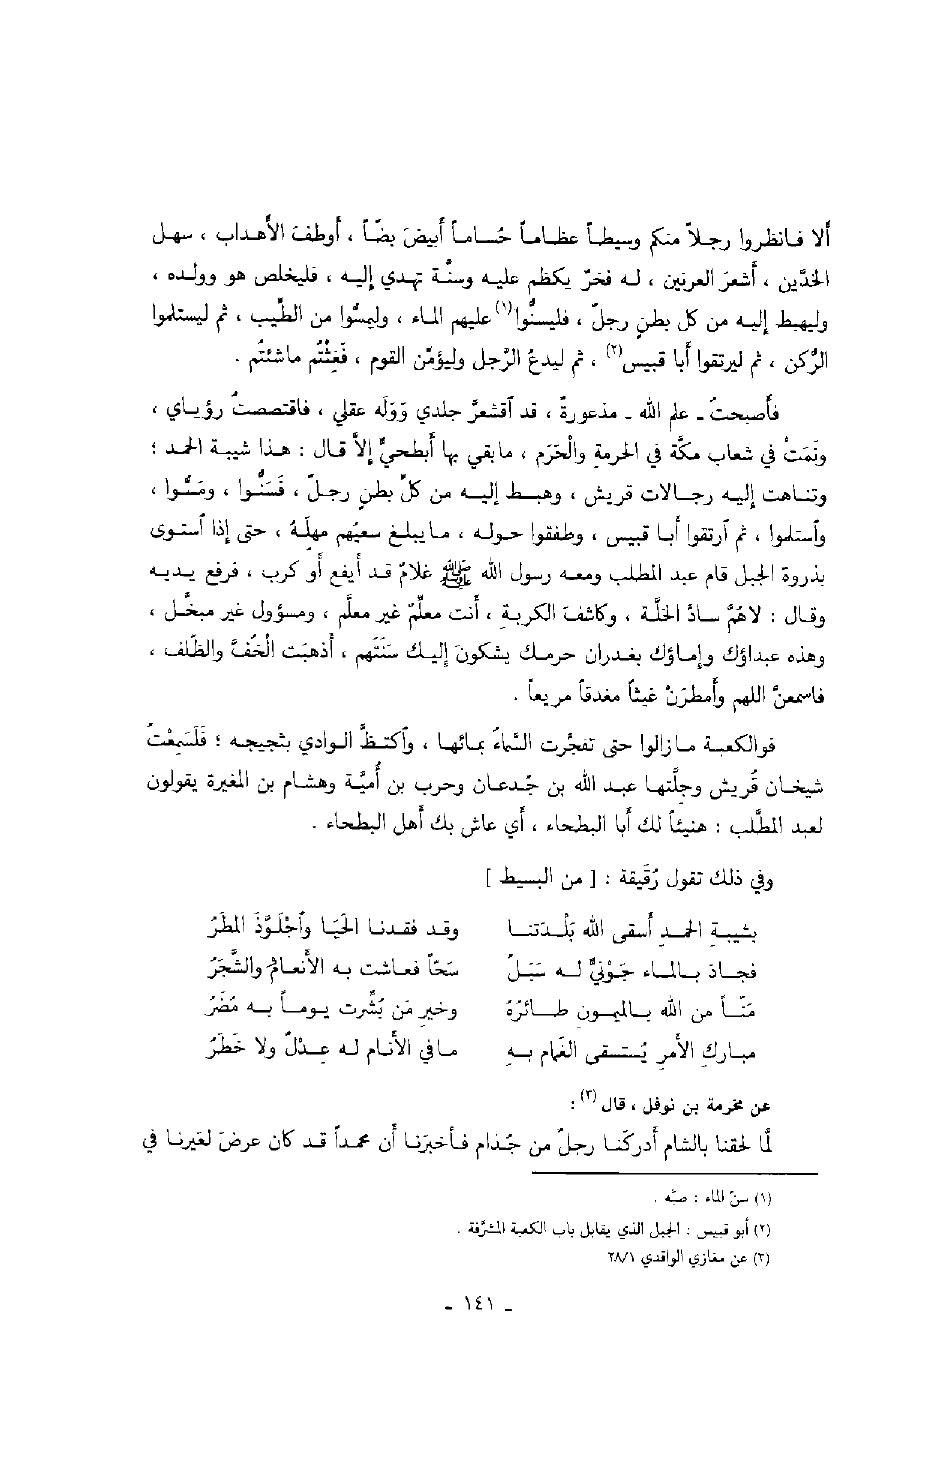 ألا فانظروا رجلاً منكم وسيطاً عظاماً جُساماً أبيضَ بضّاً ، أوطفَ الأهداب ، سهل
الخدَّين ، أشعرَ العرنين ، له فخرٌ يكظم عليه وسنَّة تهدي إليه ، فليخلص هو وولده ،
وليهبط إليه من كل بطنٍ رجلٌ ، فليسنُّوا(١) عليهم الماء ، وليمسُّوا من الطِّيب ، ثم ليستلموا
الرُّكن ، ثم ليرتقوا أبا قبيس(٢) ، ثم ليدعُ الرَّجل وليؤمِّن القوم ، فَغِثْتُم ماشئتُم .
فأصبحتُ ـ علم الله ـ مذعورةً ، قد ٱقشعرَّ جلدي وَوَلَه عقلي ، فاقتصصتُ رؤياي ،
ونَمَتْ في شعاب مكَّة في الحرمة والْحَرَم ، مابقي بها أبطحيٌّ إلاَّ قال : هذا شيبة الحمد ؛
وتناهت إليه رجالات قريش ، وهبط إليه من كلِّ بطنٍ رجلٌ ، فَسَنُّوا ، ومَسُّوا ،
وٱستلموا ، ثم ٱرتقوا أبا قبيس ، وطفقوا حوله ، مايبلغ سعيُهم مهلَهُ ، حتى إذا ٱستوى
بذروة الجبل قام عبد المطلب ومعه رسول الله ﷺ غلامٌ قد أيفع أو كرب ، فرفع يديه
وقال : لاهُمَّ سادَّ الخلَّة ، وكاشفَ الكربة ، أنت معلِّمٌ غير معلَّم ، ومسؤول غير مبخَّل ،
وهذه عبداؤك وإماؤك بغدران حرمك يشكونَ إليك سَنَتَهم ، أذهبَت الْخُفَّ والظِّلف ،
فاسمعنَّ اللهم وأمطرَنْ غيثاً مغدقاً مريعاً .
فوالكعبة مازالوا حتى تفجَّرت السَّماءُ بمائها ، وٱكتظَّ الوادي بثجيجه ؛ فَلَسَمِعْتُ
شيخان قُريش وجلَّتها عبد الله بن جُدعان وحرب بن أميَّة وهشام بن المغيرة يقولون
لعبد المطَّلب : هنيئاً لك أبا البطحاء ، أي عاش بك أهل البطحاء .
وفي ذلك تقول رُقَيقة : [ من البسيط ]
بشيبةِ الحمدِ أسقى الله بَلْدَتنا وقد فقدنا الحَيَا وٱجْلَوَّذَ المطَرُ
فجادَ بالماء جَوْنِيٌّ له سَبَلُ سَحّاً فعاشت به الأنعامُ والشَّجَرُ
مَنّاً من الله بالميمون طائرُهُ وخيرِ مَن بُشِّرت يوماً به مُضَرُ
مباركِ الأمرِ يُستسقى الغَمام بهِ مافي الأنام له عِدْلٌ ولا خَطَرُ
عن مخرمة بن نوفل ، قال(٣) :
لمَّا لحقنا بالشام أدركَنا رجلٌ من جُذام فأخبرَنا أن محمداً قد كان عرضَ لعيرنا في
(١) سنّ الماء : صبَّه .
(٢) أبو قبيس : الجبل الذي يقابل باب الكعبة المشرَّفة .
(٣) عن مغازي الواقدي ٢٨/١
ـ ١٤١ ـ